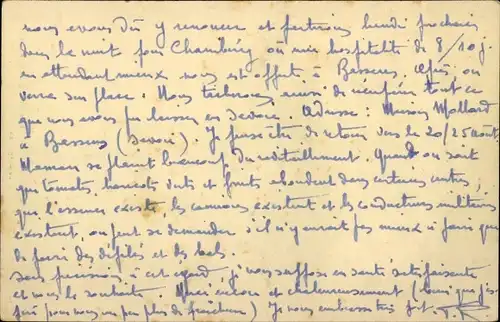 nous avons dû y renoncer et partirons lundi prochain
dans la nuit pour Chambéry où une hospitalité de 8/10 j.
en attendant mieux nous est offerte à Bassens. Après on
verra sur place. Nous tâcherons aussi de récupérer tout ce
que nous avons pu laisser en Savoie. Adresse : Maison Mollard
à Bassens (Savoie). Je pense être de retour vers le 20/25 août.
Maman se plaint beaucoup du ravitaillement. Quand on sait
que tomates, haricots verts et fruits abondent dans certains centres,
que l'essence existe, les camions existent et les conducteurs militaires
existent, on peut se demander s'il n'y aurait pas mieux à faire que
de faire des défilés et des bals.
Sans précisions à cet égard je vous suppose en santé satisfaisante
et vous le souhaite. Merci encore et chaleureusement (merci que j'
pour nous un peu plus de fraîcheur) Je vous embrasse très fort.